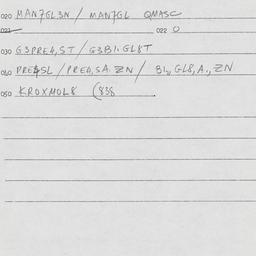 020 MAN7GL3N / MAN7GL QMASC
022 022 0
030 G3PRE4,ST / G3B1.GL8T
040 PRE4SL / PRE4,SA.ZN / B1,GL8,A.,ZN
050 KROXMOL8 (838